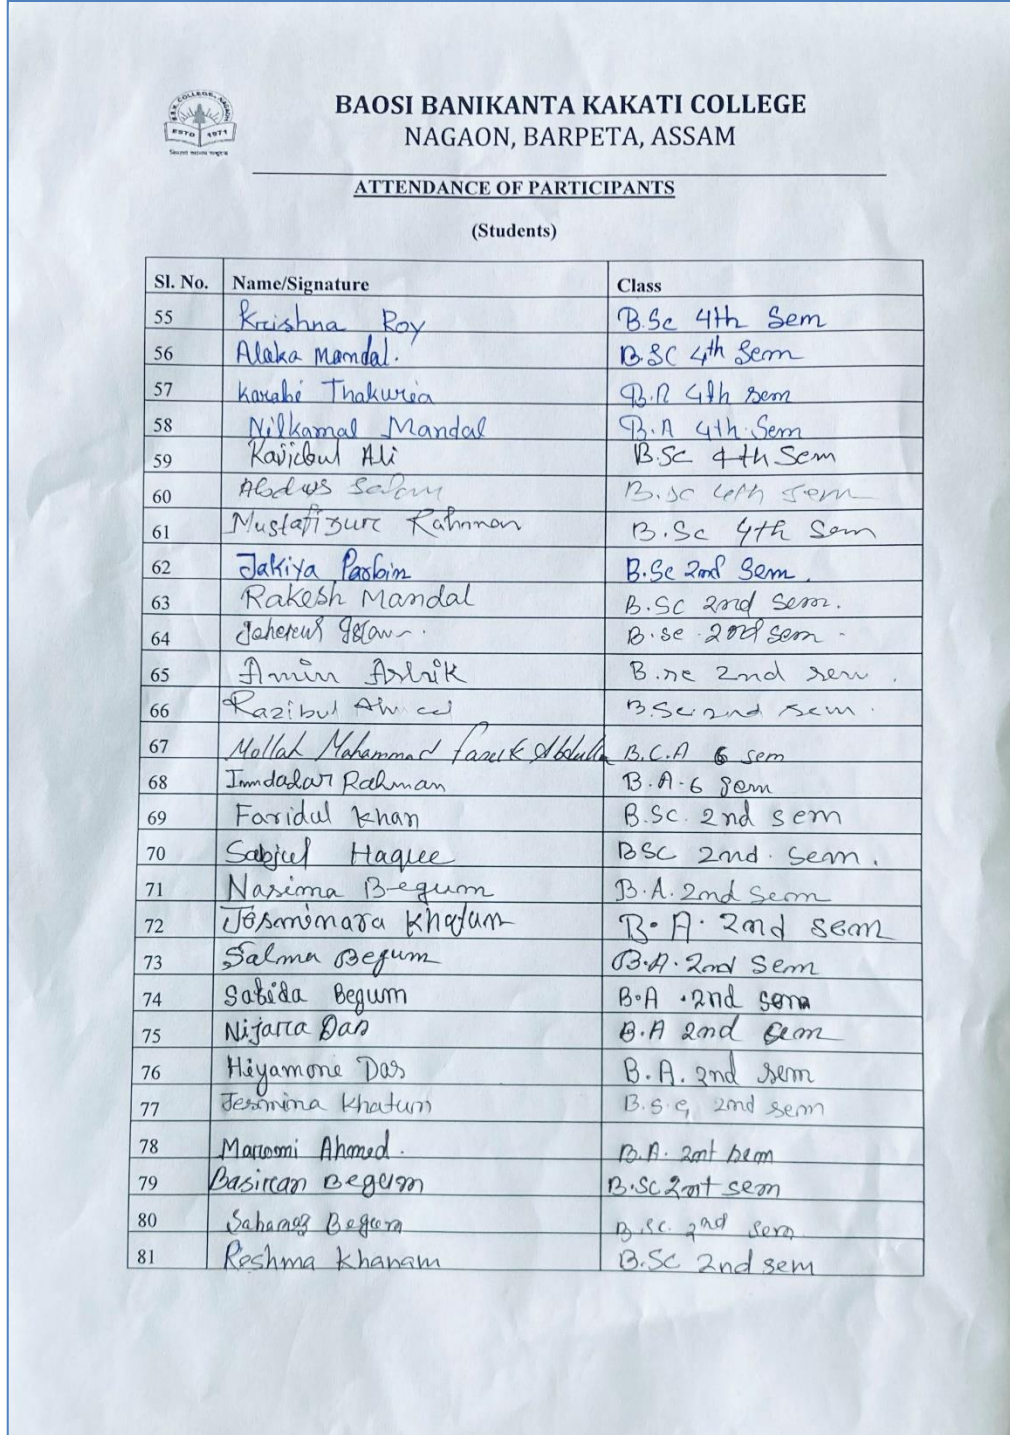 B.B.K. COLLEGE, NAGAON
ESTD 1971
BAOSI BANIKANTA KAKATI COLLEGE
NAGAON, BARPETA, ASSAM
ATTENDANCE OF PARTICIPANTS
(Students)
Sl. No. Name/Signature Class
55 Krishna Roy B.Sc 4th Sem
56 Alaka Mandal. B.SC 4th Sem
57 Karabi Thakuria B.A 4th sem
58 Nilkamal Mandal B.A 4th Sem
59 Ali B.Sc 4th Sem
60 Abdus Salam B.Sc 4th sem
61 Mustafizur Rahman B.Sc 4th Sem
62 Jakiya Parbin B.Sc 2nd Sem.
63 Rakesh Mandal B.SC 2nd Sem.
64 B.sc. 2nd sem.
65 Amin B.sc 2nd sem.
66 Razibul Ahmed B.Sc. 2nd sem.
67 Mollah Mahammad Faruk Abdulla B.C.A 6 sem
68 Imdadar Rahman B.A-6 sem
69 Faridul Khan B.Sc. 2nd sem
70 Haque BSC 2nd. Sem.
71 Nasima Begum B.A. 2nd Sem
72 Josminara Khatum B.A. 2nd sem
73 Salma Begum B.A. 2nd Sem
74 Sabida Begum B.A .2nd sem
75 Nijara Das B.A 2nd sem
76 Hiyamone Das B.A. 2nd sem
77 Jesmina Khatum B.S.c, 2nd sem
78 Ahmed. B.A. 2nt sem
79 Begum B.Sc 2nt sem
80 Begum B.Sc. 2nd sem
81 Reshma Khanam B.Sc 2nd sem